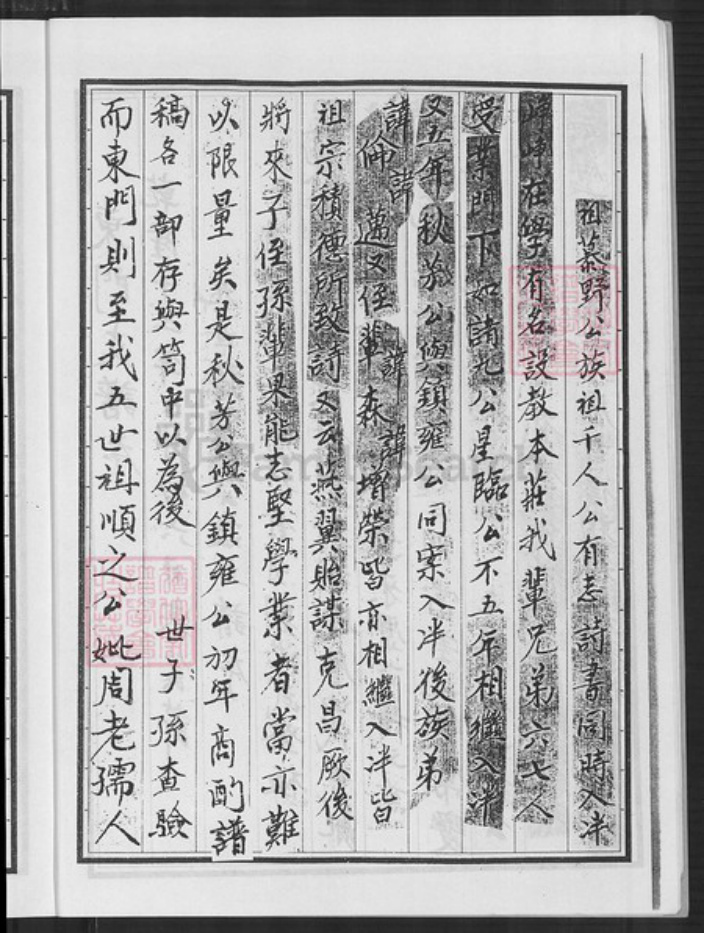 祖慕野公族祖千人公有志詩書同時入泮
崢崢在學有名設教本莊我輩兄弟六七人
受業門下如請光公星臨公不五年相繼入泮
又五年秋芳公與鎮雍公同案入泮後族弟
諱倫諱邁又侄輩諱森諱增榮皆亦相繼入泮皆
祖宗積德所致詩又云燕翼貽謀克昌厥後
將來子侄孫輩果能志堅學業者當亦難
以限量矣是秋芳公與鎮雍公初年商酌譜
稿各一部存與笥中以為後世子孫查驗
而東門則至我五世祖順之公妣周老孺人